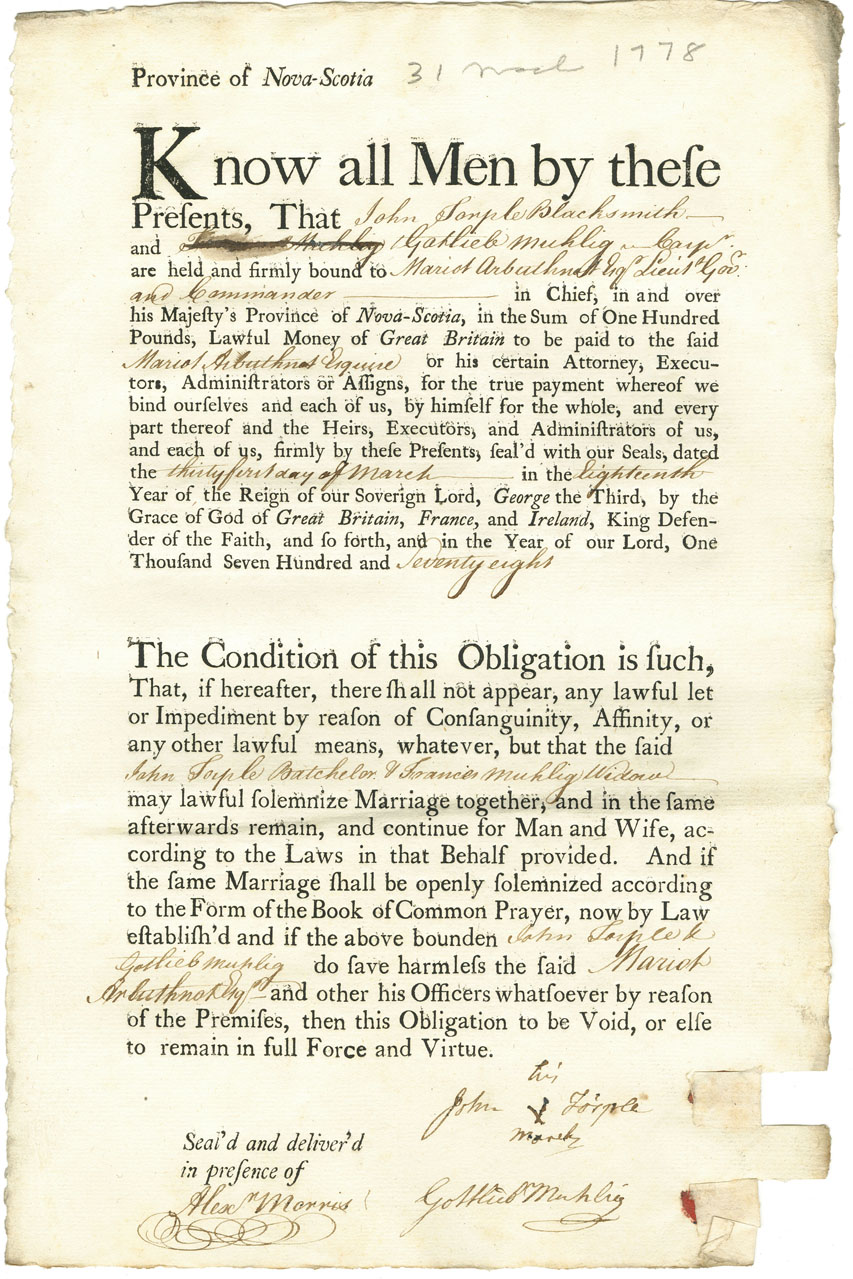 Province of Nova-Scotia 31 March 1778
Know all Men by theſe
Preſents, That John Torple Blacksmith
and Gotlieb Muhlig Carpr.
are held and firmly bound to Mariot Arbuthnot Esqr. Lieut. Govr.
and Commander in Chief, in and over
his Majeſty's Province of Nova-Scotia, in the Sum of One Hundred
Pounds, Lawful Money of Great Britain to be paid to the ſaid
Mariot Arbuthnot Esquire or his certain Attorney, Execu-
tors, Adminiſtrators or Aſſigns, for the true payment whereof we
bind ourſelves and each of us, by himſelf for the whole, and every
part thereof and the Heirs, Executors, and Adminiſtrators of us,
and each of us, firmly by theſe Preſents, ſeal'd with our Seals, dated
the thirty first day of March in the Eighteenth
Year of the Reign of our Soverign Lord, George the Third, by the
Grace of God of Great Britain, France, and Ireland, King Defen-
der of the Faith, and ſo forth, and in the Year of our Lord, One
Thouſand Seven Hundred and Seventy eight
The Condition of this Obligation is ſuch,
That, if hereafter, there ſhall not appear, any lawful let
or Impediment by reaſon of Conſanguinity, Affinity, or
any other lawful means, whatever, but that the ſaid
John Torple Batchelor & Frances Muhlig Widow
may lawful ſolemnize Marriage together, and in the ſame
afterwards remain, and continue for Man and Wife, ac-
cording to the Laws in that Behalf provided. And if
the ſame Marriage ſhall be openly ſolemnized according
to the Form of the Book of Common Prayer, now by Law
eſtabliſh'd and if the above bounden John Torple &
Gotlieb Muhlig do ſave harmleſs the ſaid Mariot
Arbuthnot Esqr. and other his Officers whatſoever by reaſon
of the Premiſes, then this Obligation to be Void, or elſe
to remain in full Force and Virtue.
his
John X Torple
mark
Seal'd and deliver'd
in preſence of
Alexr. Morris
Gottlieb Muhlig